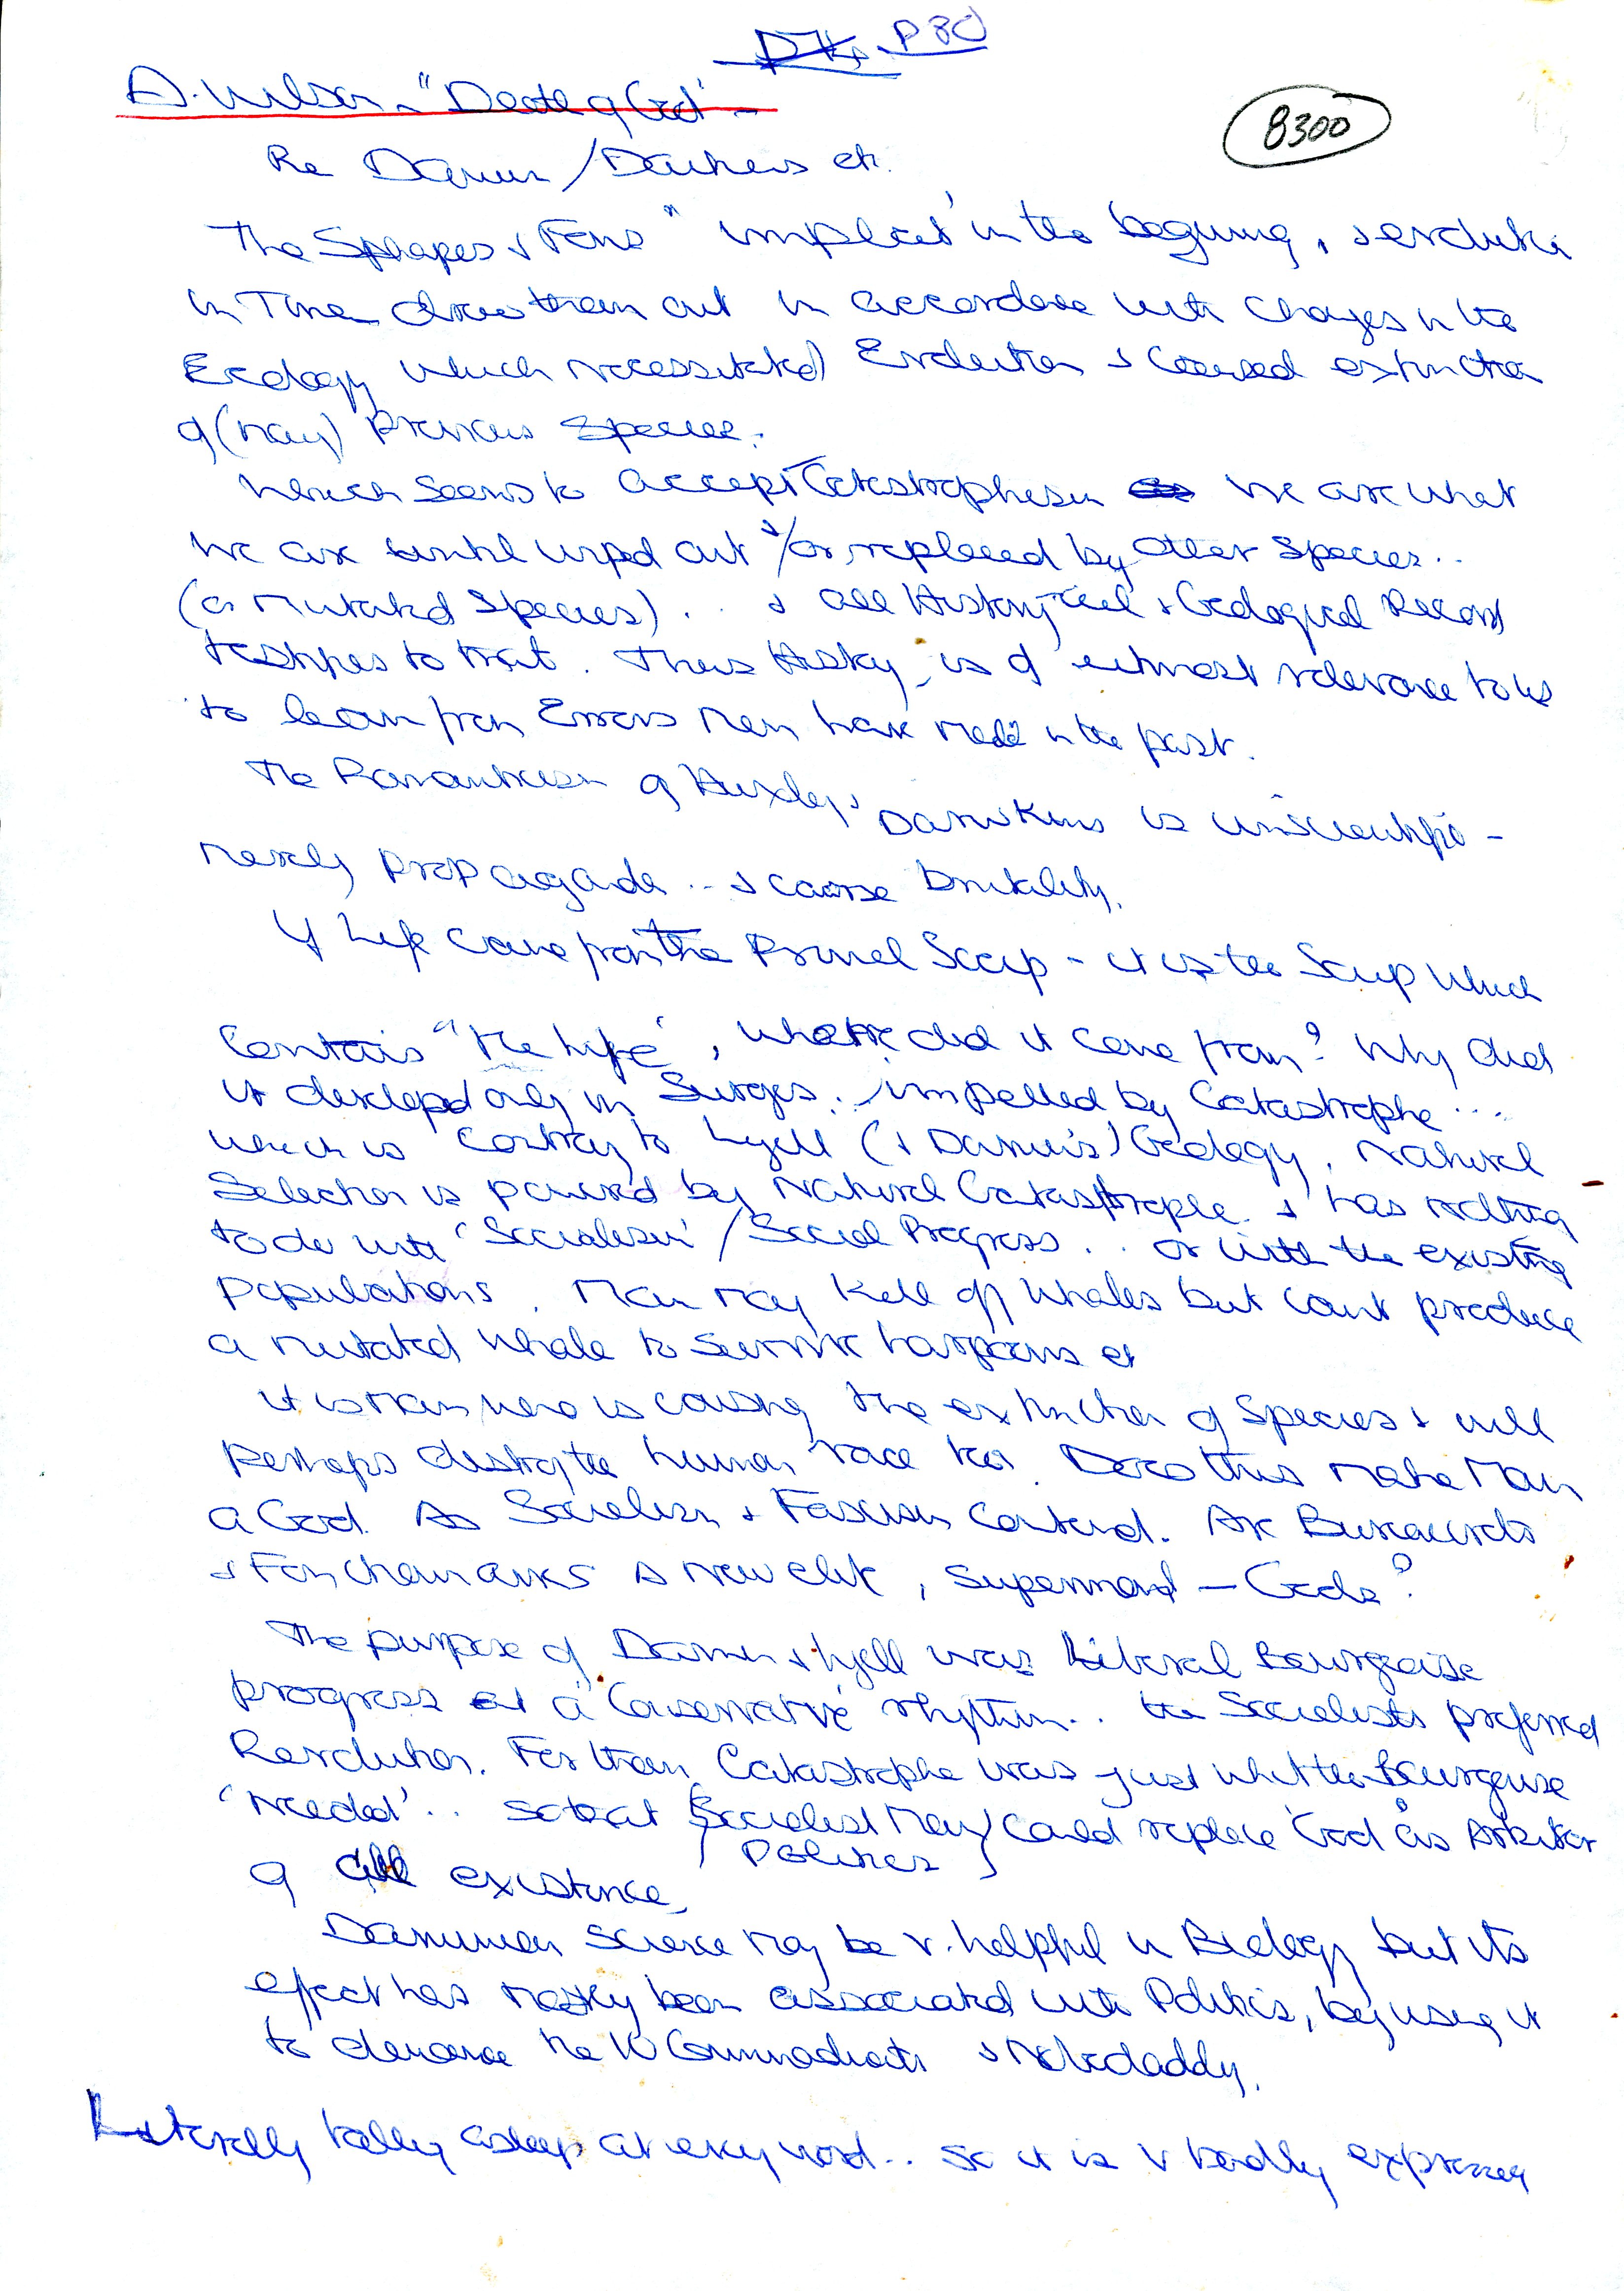 P80
8300
A. Wilson - "Death of God" -
Re Darwin / Dawkins etc.
The Shapes & Forms "implicit" in the beginning, & evolution
in Time drew them out in accordance with changes in the
Ecology which necessitated Evolution & caused extinction
of (many) previous species.
Which seems to accept Catastrophism we are what
we are until wiped out &/or replaced by other species..
(or mutated species)... & all Historical & Geological Record
testifies to that. Thus History is of utmost relevance to us
to learn from Errors Men have made in the past.
The Romanticism of Huxley, Dawkins is unscientific -
merely propaganda .. & coarse brutality.
If Life came from the Primal Soup - it is the Soup which
contains "the life", where did it come from? Why did
it develop only in Surges. impelled by Catastrophe....
which is contrary to Lyell (& Darwin's) Geology. Natural
Selection is powered by Natural Catastrophe & has nothing
to do with 'Socialism' / Social Progress... or with the existing
populations. Man may kill off Whales but can't produce
a mutated whale to survive harpoons etc
it is Man who is causing the extinction of Species & will
perhaps destroy the human race too. Does this make Man
a God. As Socialism & Fascism contend. Are Bureaucrats
& a new elite, Supermen - Gods?
The purpose of Darwin & Lyell was Liberal Bourgeoise
progress at a 'Conservative' rhythm.. the Socialists preferred
Revolution. For them Catastrophe was just what the Bourgeoise
'needed'.. so that (Socialist Man) could replace 'God' as Arbiter
Politics
of all existence
Darwinian Science may be v. helpful in Biology but its
effect has mostly been associated with Politics, by using it
to denounce the 10 Commandments & Nobodaddy.
Literally falling asleep at every word.. so it is v badly expressed